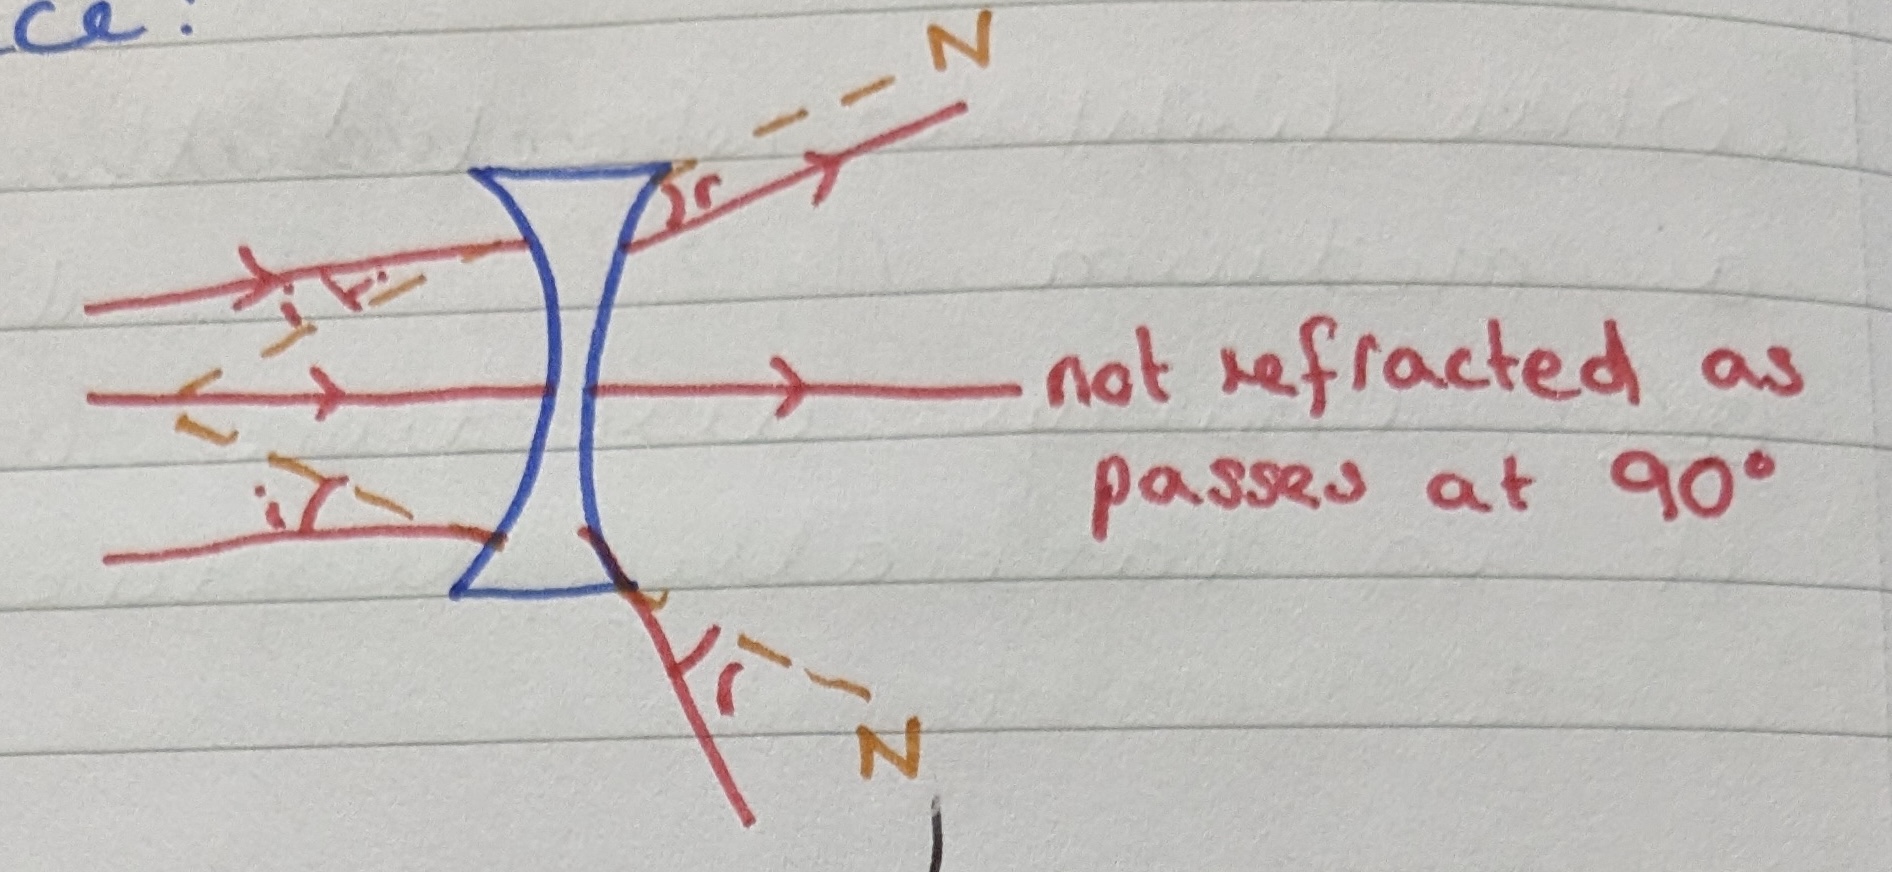 ce:
N
r
i
i
not refracted as
passes at 90°
i
r
N